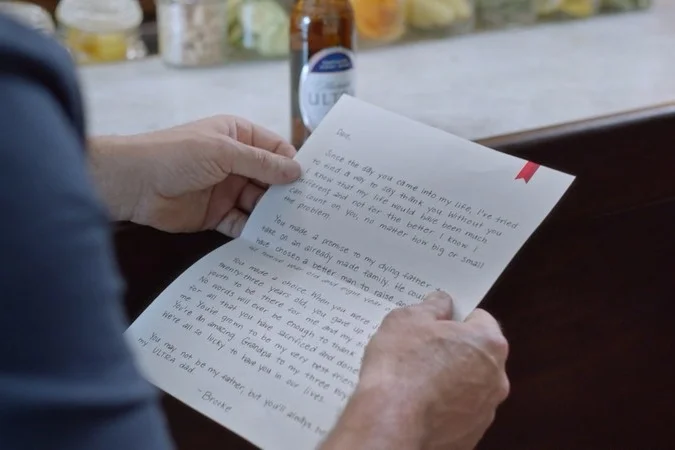 ULT
Since the day you came into my life, I've tried
to find a way to say thank you. Without you
I know that my life would have been much
different and not for the better. I know I
can count on you, no matter how big or small
the problem.
You made a promise to my dying father to
take on an already made family. He could
have chosen a better man to raise
You made a choice. When you were
twenty-three years old, you gave up
youth to be there for me and my
No words will ever be enough to thank
for all that you have sacrificed and done
me. You've grown to be my very best friend
You're an amazing Grandpa to my three boys
We're all so lucky to have you in our lives.
You may not be my father, but you'll always be
my ULTRA dad.
- Brooke